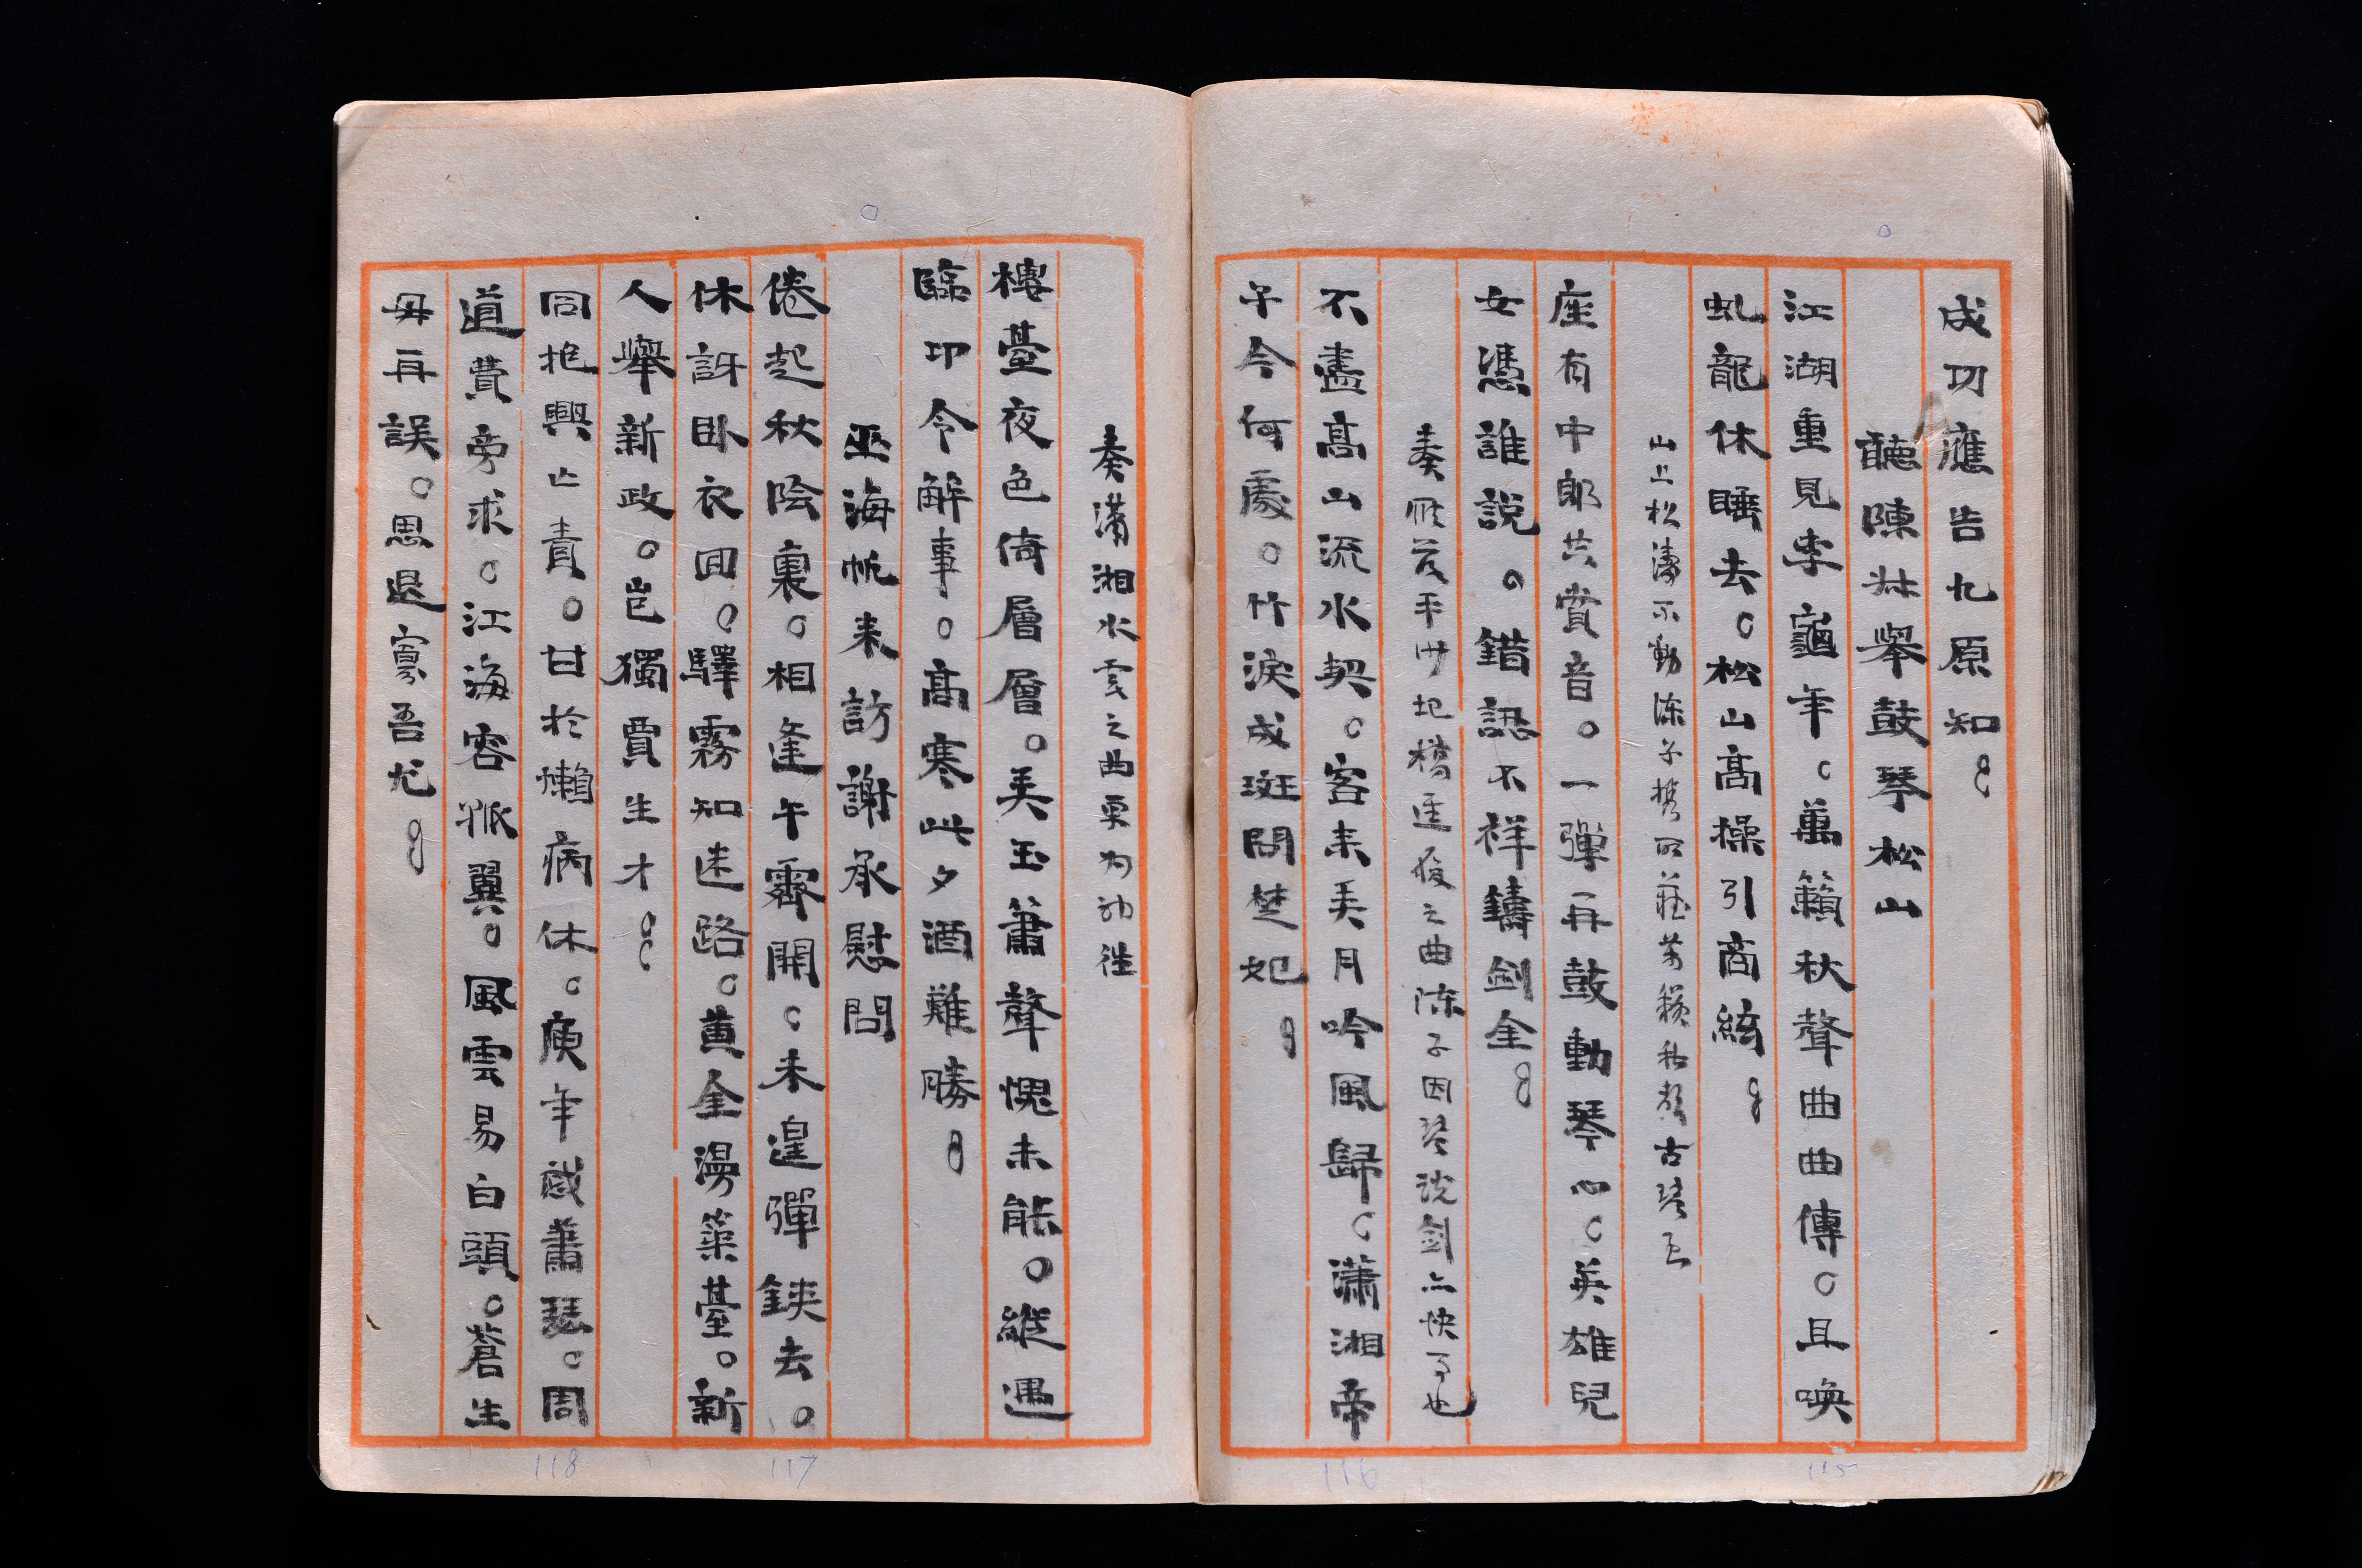 成功應告九原知。
聽陳林舉鼓琴松山
江湖重見李龜年。萬籟秋聲曲曲傳。且喚
虬龍休睡去。松山高操引商絃。
山上松濤不動陳子携所藏萬籟秋聲古琴至
座有中郎共賞音。一彈再鼓動琴心。英雄兒
女憑誰說。錯認不祥鑄劍金。
奏雁落平沙圯橋進履之曲陳子因琴說劍亦快事也
不盡高山流水契。客來弄月吟風歸。瀟湘帝
子今何處。竹淚成斑問楚妃。
奏瀟湘水雲之曲更為神往
樓臺夜色倚層層。弄玉簫聲愧未能。縱遇
臨邛令解事。高寒此夕酒難勝。
巫海帆來訪謝承慰問
倦起秋陰裏。相逢午霽開。未遑彈鋏去。
休訝臥衣回。驛霧知迷路。黃金漫築臺。新
人舉新政。豈獨賈生才。
同抱興亡責。甘於懶病休。庾年感蕭瑟。周
道費旁求。江海容孤翼。風雲易白頭。蒼生
毋再誤。思退寡吾尤。
118
117
116
115